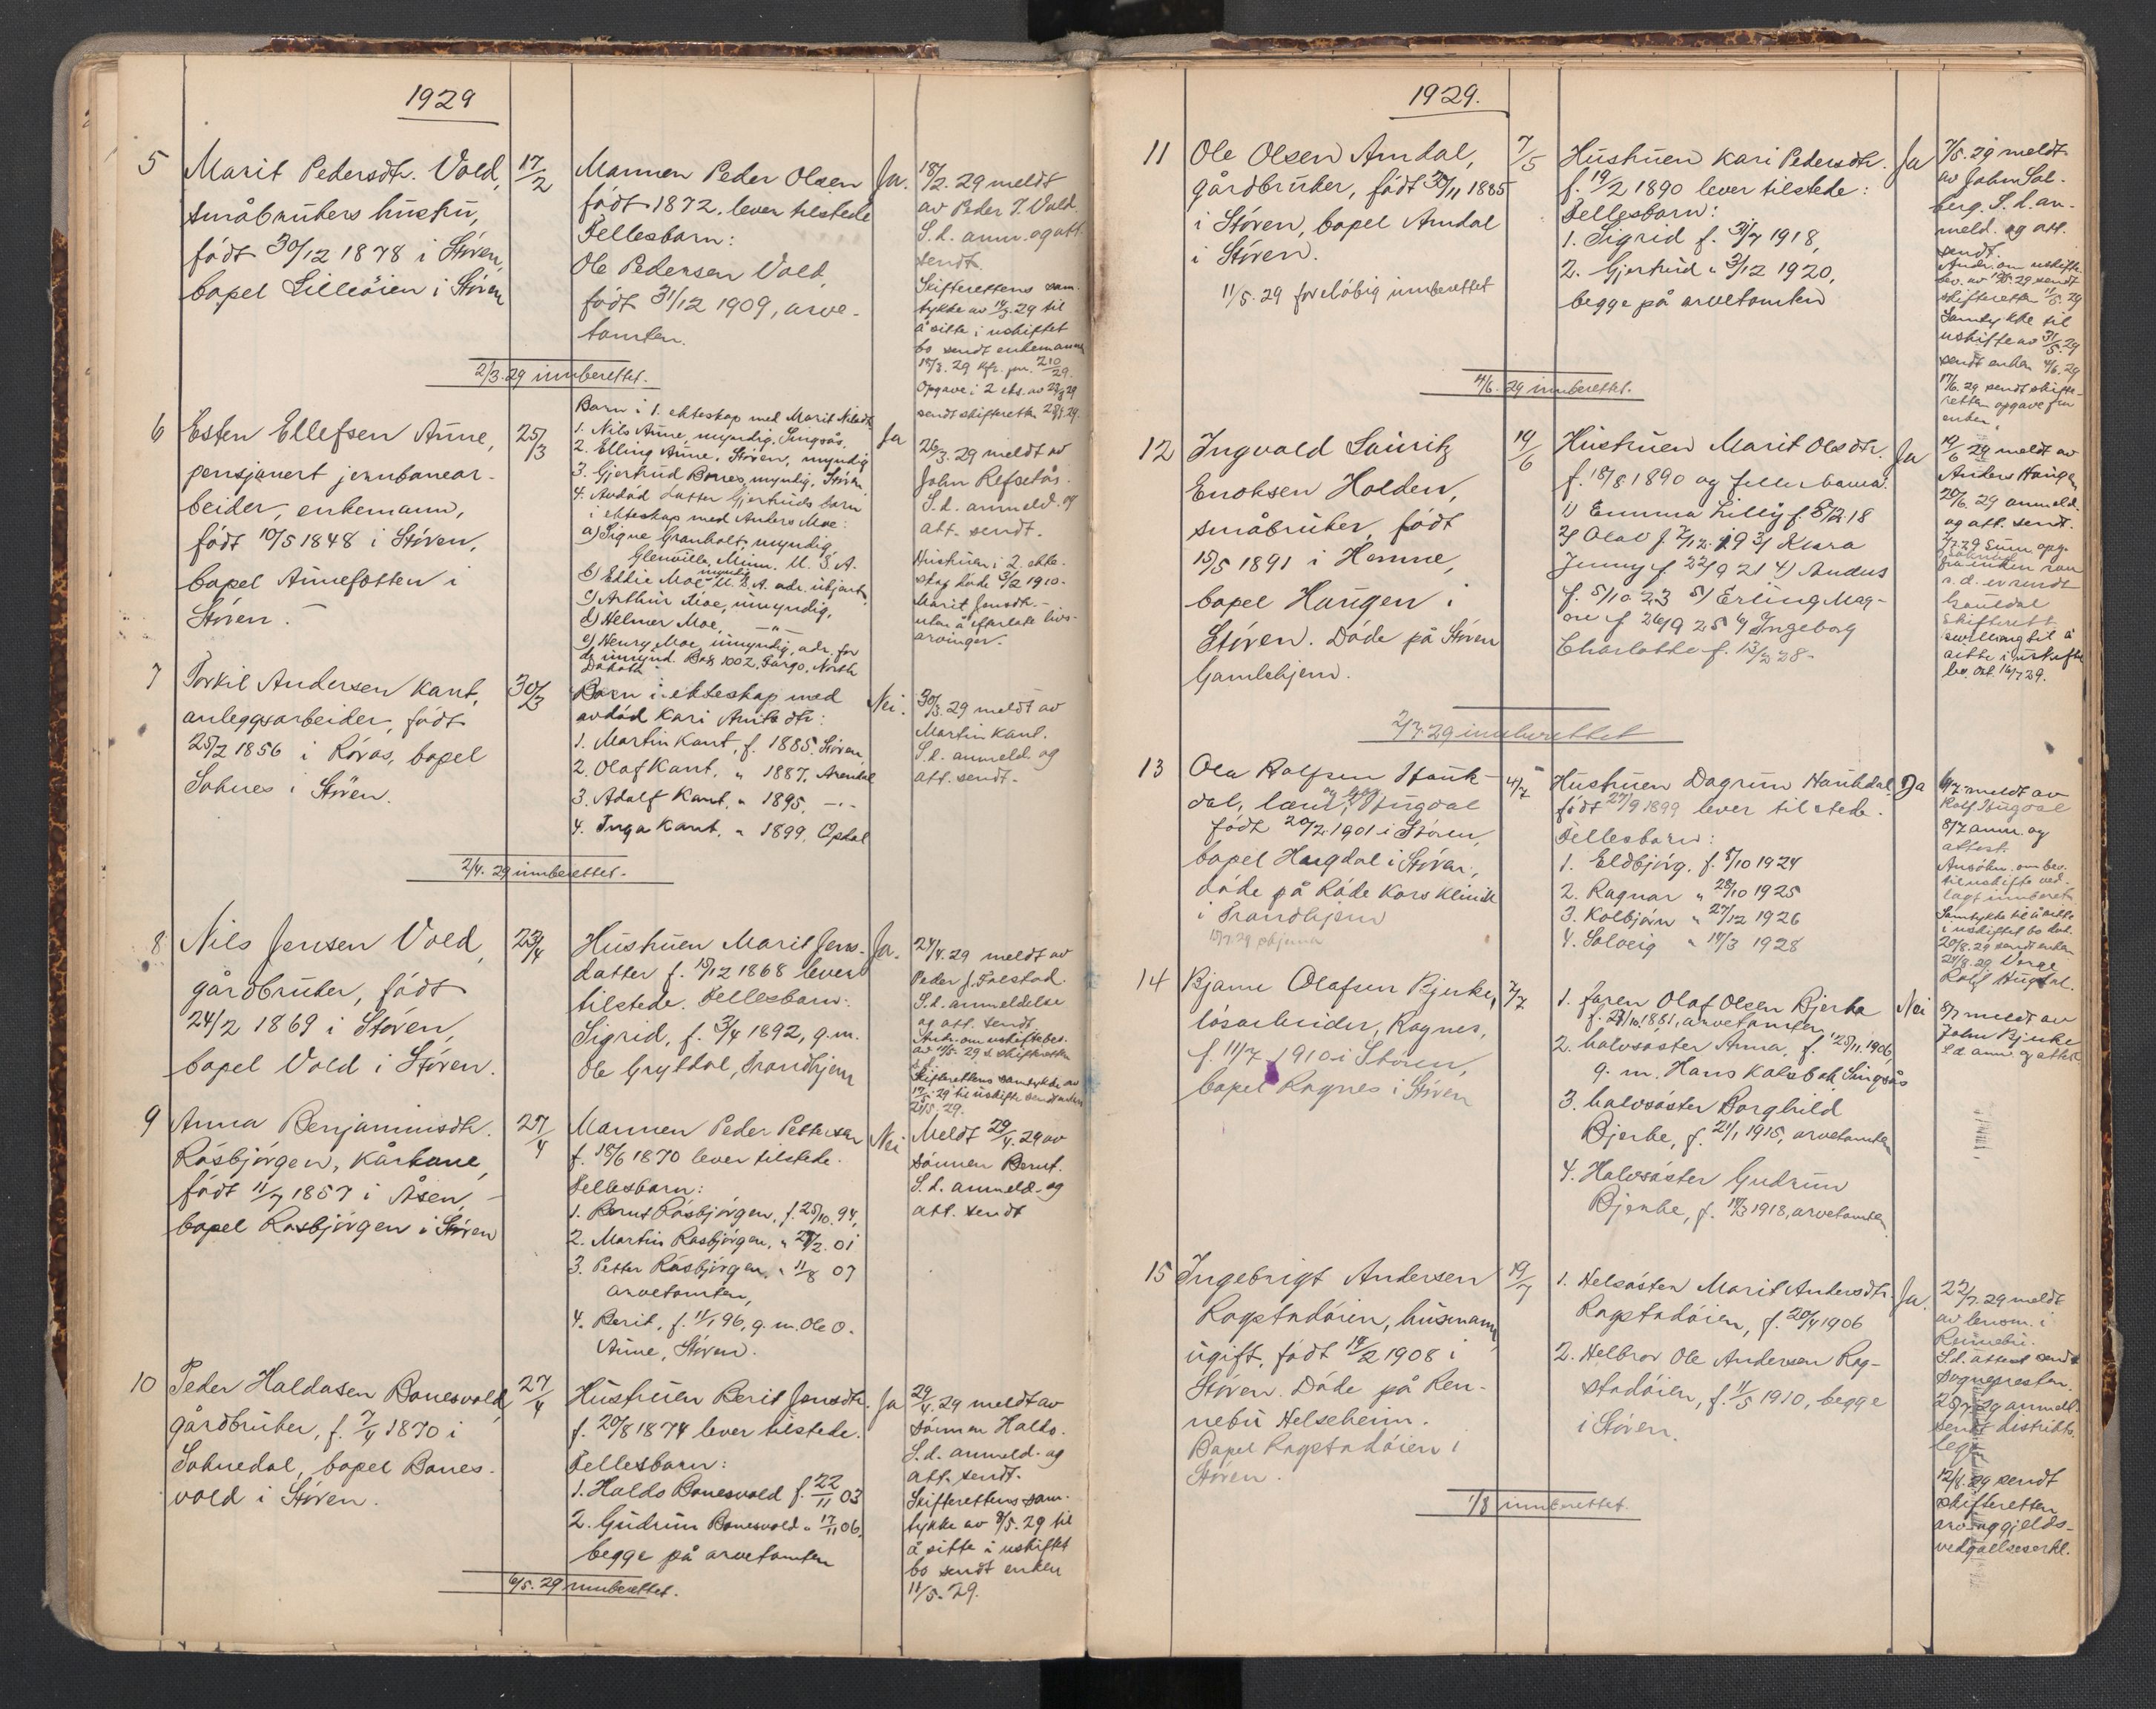 1929
5
Marit Pedersdtr. Vold,
småbrukers hustru,
født 30/12 1878 i Støren,
bopel Lilleøien i Støren
17/2
Mannen Peder Olsen
født 1872, lever tilstede
Fellesbarn:
Ole Pedersen Vold,
født 31/12 1909, arve-
tomten.
Ja.
18/2. 29 meldt
av Peder J. Vold.
S.d. anm. og att.
sendt.
Skifterettens sam-
tykke av 14/3. 29 til
å sitte i uskiftet
bo sendt enkemannen
Opgave i 2 eks. av
sendt skifteretten
2/3. 29 innberettet.
6
Esten Ellefsen Aune,
pensjonert jernbanear-
beider, enkemann,
født 10/5 1848 i Støren,
bopel Aunefotten i
Støren.
25/3
Barn i 1. ekteskap med Marit Nilsdtr.
1. Nils Aune, myndig, Singsås.
2. Elling Aune, Støren, myndig
3. Gjertrud Bones, myndig, Støren
4. Avdød datter Gjertruds barn
i ekteskap med Anders Moe:
a) Signe Granholt, myndig,
Glenville, Minn. U. S. A.
b) Eddie Moe, myndig U.S.A. adr. ukjent
c) Arthur Moe, umyndig,
d) Helmer Moe, — " —
e) Henry Moe, umyndig, adr. for
de umynd. Box 1002, Fargo, North
Dakota
Ja
26/3. 29 meldt av
John Refsetås.
S.d. anmeld. og
att. sendt.
Hustruen i 2. ekte-
skap døde 3/2 1910.
Marit Jensdtr. -
uten å efterlate livs-
arvinger.
7
Torkil Andersen Kant,
anleggsarbeider, født
25/2 1856 i Røros, bopel
Soknes i Støren.
30/3
Barn i ekteskap med
avdød Kari Arntsdtr:
1. Martin Kant, f. 1885. Støren
2. Olaf Kant, " 1887, Arendal
3. Adolf Kant, " 1895, -"-
4. Inga Kant, " 1899, Opdal
Nei.
30/3. 29 meldt av
Martin Kant.
S.d. anmeld. og
att. sendt.
2/4. 29 innberettet.
8
Nils Jensen Vold,
gårdbruker, født
24/2 1869 i Støren,
bopel Vold i Støren.
23/4
Hustruen Marit Jens-
datter f. 15/12 1868 lever
tilstede. Fellesbarn:
Sigrid, f. 3/4 1892, g.m.
Ole Gryttdal, Trondhjem
Ja.
24/4. 29 meldt av
Peder J. Folstad.
S.d. anmeldelse
og att. sendt.
Skifterettens samtykke av
17/5. 29 til uskifte sendt enken
9
Anna Benjaminsdtr.
Råsbjørgen, kårkone,
født 11/7 1857 i Åsen,
bopel Råsbjørgen i Støren
27/4
Mannen Peder Pettersen
f. 18/6 1870 lever tilstede.
Fellesbarn:
1. Bernt Råsbjørgen, f. 25/10. 94,
2. Martin Råsbjørgen, " 27/2. 01
3. Petter Råsbjørgen, " 11/8 07
arvetomten,
4. Berit, f. 11/1 96, g.m. Ole O.
Aune, Støren.
Nei
Meldt 29/4. 29 av
sønnen Bernt.
S.d. anmeld. og
att. sendt
10
Peder Haldosen Bonesvold,
gårdbruker, f. 7/4 1870 i
Soknedal, bopel Bones-
vold i Støren.
27/4
Hustruen Berit Jensdtr.
f. 20/8 1874 lever tilstede.
Fellesbarn:
1. Haldo Bonesvold f. 22/11 03
2. Gudrun Bonesvold " 17/11 06,
begge på arvetomten
Ja
29/4. 29 meldt av
sønnen Haldo.
S.d. anmeld. og
att. sendt.
Skifterettens sam-
tykke av 8/5. 29 til
å sitte i uskiftet
bo sendt enken
11/5. 29.
6/5. 29 innberettet.
1929.
11
Ole Olsen Amdal,
gårdbruker, født 30/11 1885
i Støren, bopel Amdal
i Støren.
11/5. 29 foreløbig innberettet
7/5
Hustruen Kari Pedersdtr.
f. 19/2 1890 lever tilstede:
Fellesbarn:
1. Sigrid f. 31/7 1918,
2. Gjertrud " 3/12 1920,
begge på arvetomten
Ja
7/5. 29 meldt
av John Sol-
berg. S.d. an-
meld. og att.
sendt.
Andr. om uskifte-
bev. av 10/5. 29 sendt
skifteretten 11/5. 29
Samtykke til
uskifte av 31/5. 29
sendt enken 4/6. 29
17/6. 29 sendt skifte-
retten opgave fra
enken.
4/6. 29 innberettet.
12
Ingvald Lauritz
Enoksen Holden,
småbruker, født
15/5 1891 i Hemne,
bopel Haugen i
Støren. Døde på Støren
Gamlehjem.
19/6
Hustruen Marit Olsdtr.
f. 18/8 1890 og fellesbarna:
1) Emma Lilly f. 5/2. 18
2) Olav f. 2/12. 19 3) Klara
Jenny f. 22/9 21 4) Andus
f. 5/10. 23 5) Erling Mag-
ne f. 26/9 25 6) Ingeborg
Charlotte f. 13/2 28.
Ja
19/6 29 meldt av
Anders Haugen
20/6. 29 anmeld.
og att. sendt.
Gauldal
skifterett
2/7. 29 innberettet
13
Ola Rolfsen Hauk-
dal,
født 20/2. 1901 i Støren,
bopel Haugdal i Støren,
døde på Røde Kors Klinik
i Trondhjem
4/7
Hustruen Dagrun Haukdal
født 27/9 1899 lever tilstede.
Fellesbarn:
1. Eldbjørg, f. 5/10 1924
2. Ragnar " 28/10 1925
3. Kolbjørn " 27/12 1926
4. Solveig " 14/3 1928
Ja
6/7 meldt av
Rolf Hugdal
8/7 anm. og
attest.
Samtykke til å sitte
i uskiftet bo dat.
20/8. 29 sendt enken
14
Bjarne Olafsen Bjerke,
løsarbeider, Ragnes,
f. 11/7 1910 i Støren,
bopel Ragnes i Støren
7/7
1. faren Olaf Olsen Bjerke
f. 21/10. 1881, arvetomten,
2. halvsøster Anna, f. 25/11. 1906
g. m. Hans Kolsbak, Singsås
3. halvsøster Borghild
Bjerke, f. 21/1 1915, arvetomten
4. Halvsøster Gudrun
Bjerke, f. 14/3 1918, arvetomten
Nei
8/7 meldt av
John Bjerke
S.d. anm. og attest
15
Ingebrigt Andersen
Rogstadøien, husmann,
ugift, født 14/2 1908 i
Støren. Døde på Ren-
nebu Helseheim.
Bopel Rogstadøien i
Støren.
19/7
1. Helsøsten Marit Andersdtr.
Rogstadøien, f. 20/4 1906
2. Helbror Ole Andersen Rog-
stadøien, f. 11/5 1910, begge
i Støren.
Ja.
22/7. 29 meldt
av lensm. i
Rennebu.
S.d. attest sendt
sognepresten.
25/7. 29 anmeld.
sendt distrikts-
lege
12/8. 29 sendt
skifteretten
arv- og gjelds-
vedgåelseserkl.
1/8 innberettet.